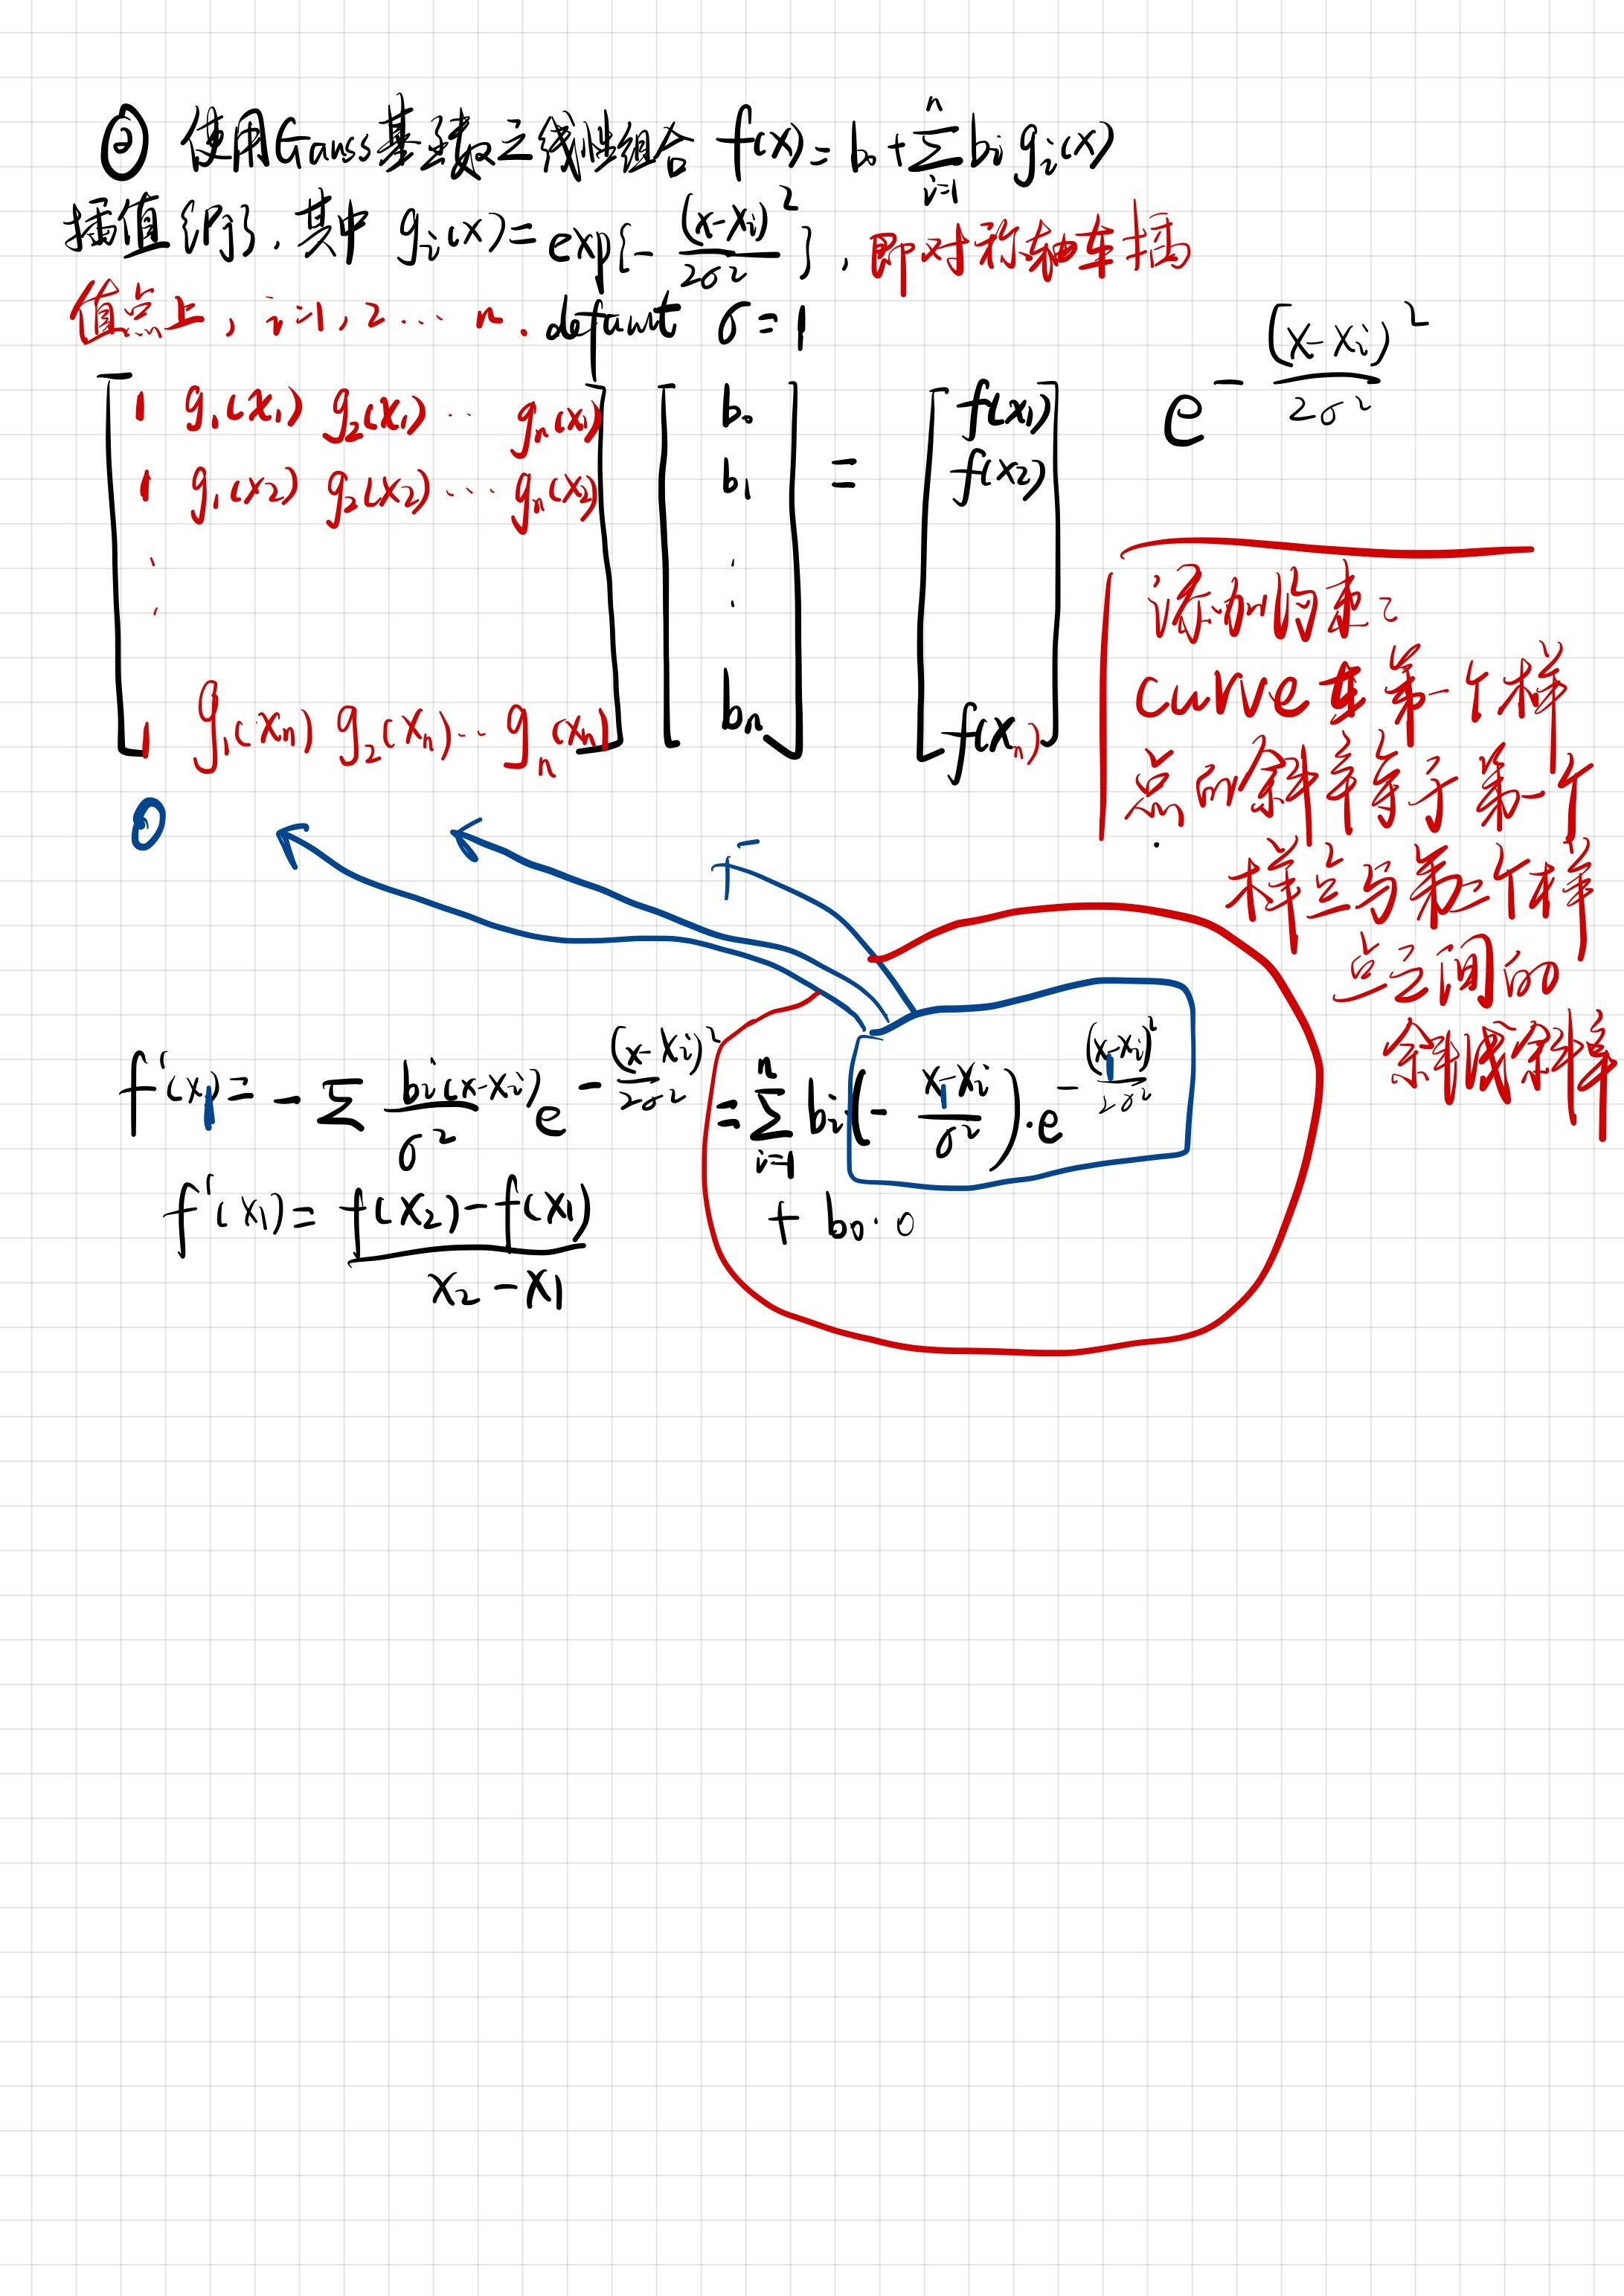 ② 使用Gauss基函数之线性组合 f(x) = b₀ + ∑ⁿᵢ₌₁ bᵢ gᵢ(x)
插值 {Pⱼ}, 其中 gᵢ(x) = exp{- (x-xᵢ)² / 2σ²}, 即对称轴在插
值点上, i=1,2… n. default σ=1
e^{- (x-xᵢ)² / 2σ²}
[ 1 g₁(x₁) g₂(x₁) … gₙ(x₁) ] [ b₀ ] = [ f(x₁) ]
[ 1 g₁(x₂) g₂(x₂) … gₙ(x₂) ] [ b₁ ] [ f(x₂) ]
[ ⋮ ] [ ⋮ ]
[ 1 g₁(xₙ) g₂(xₙ) … gₙ(xₙ) ] [ bₙ ] [ f(xₙ) ]
0
添加约束:
curve在第一个样
点的斜率等于第一个
样点与第二个样
点之间的
斜线斜率
f'(x₁) = - ∑ bᵢ(x-xᵢ) / σ² e^{- (x-xᵢ)² / 2σ²} = ∑ⁿᵢ₌₁ bᵢ (- (x₁-xᵢ) / σ²) · e^{- (x₁-xᵢ)² / 2σ²}
+ b₀·0
f'(x₁) = (f(x₂) - f(x₁)) / (x₂ - x₁)